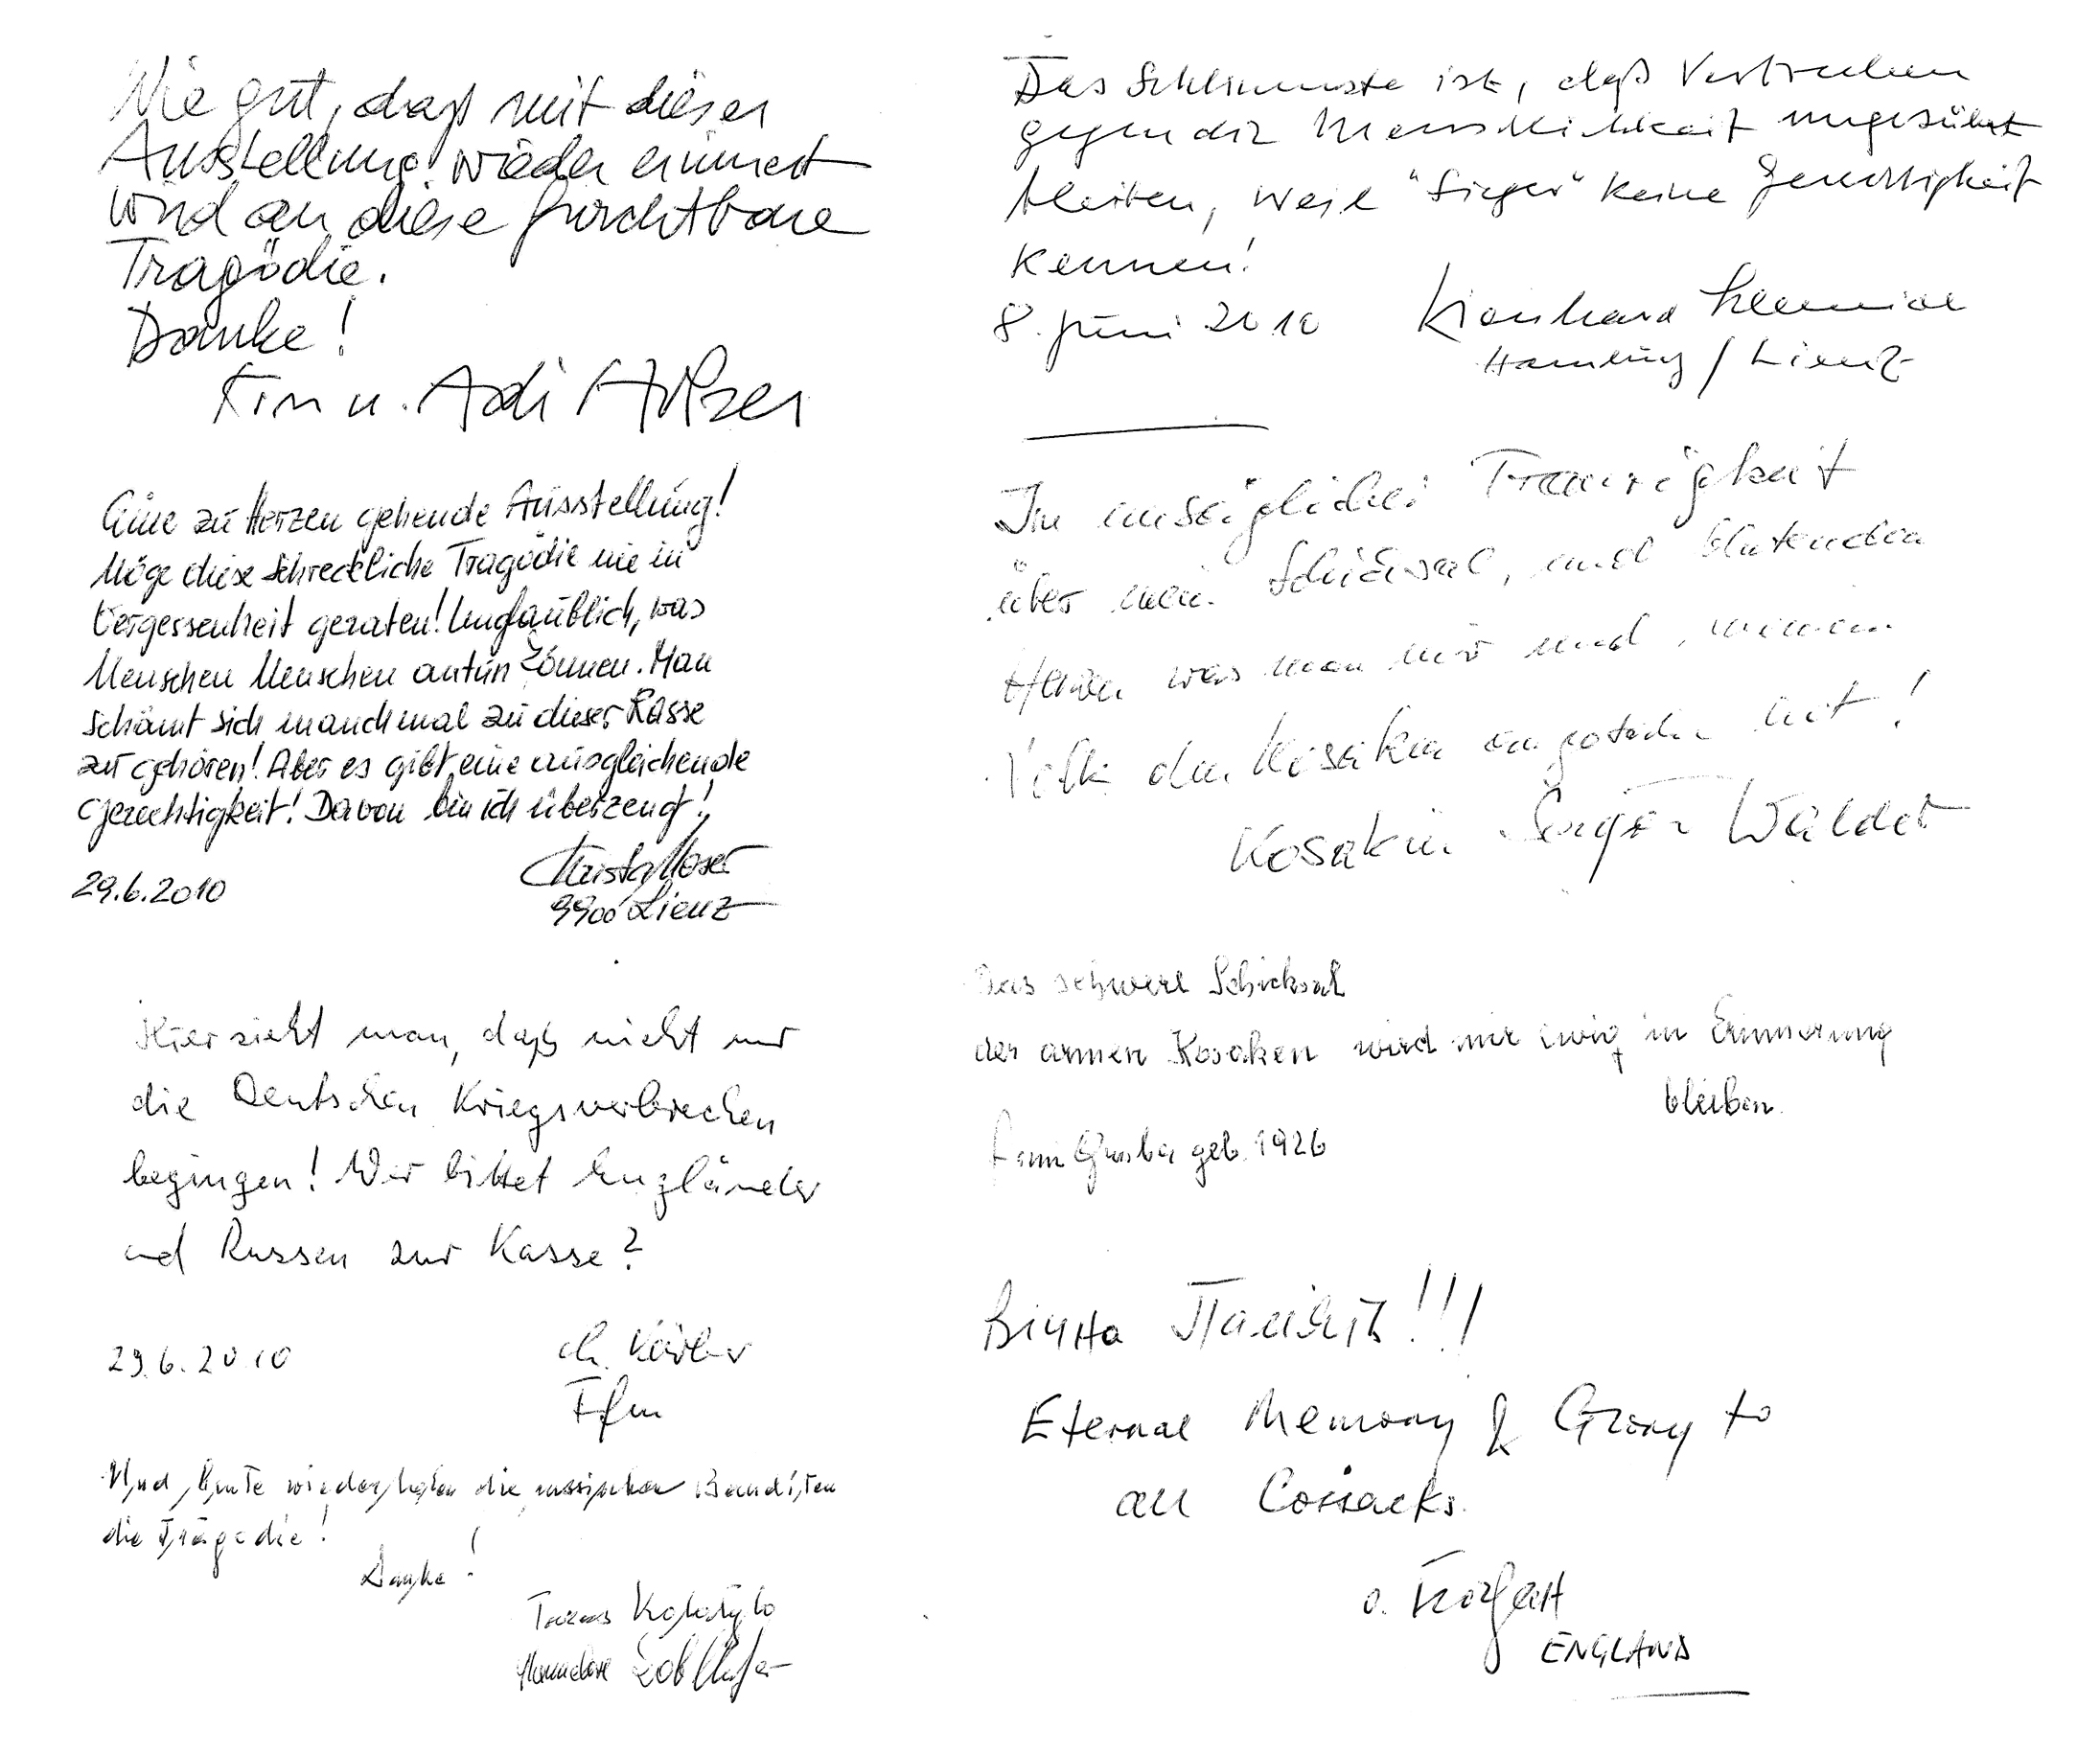 Wie gut, daß mit dieser
Ausstellung wieder erinnert
wird an diese furchtbare
Tragödie.
Danke!
u. Adi Holzer
Eine zu Herzen gehende Ausstellung!
Möge diese schreckliche Tragödie nie in
Vergessenheit geraten! Unglaublich, was
Menschen Menschen antun können. Man
schämt sich manchmal zu dieser Rasse
zu gehören! Aber es gibt eine ausgleichende
Gerechtigkeit! Davon bin ich überzeugt!
Christa Moser
29.6.2010
9900 Lienz
Hier sieht man, daß nicht nur
die Deutschen Kriegsverbrechen
begingen! Wer bittet Engländer
und Russen zur Kasse?
29.6.2010
Ch.
Ffm
Und heute wiederholen die russischen Banditen
die Tragödie!
Danke!
Taras
Hannelore
Das Schlimmste ist, daß Verbrechen
gegen die Menschlichkeit ungesühnt
bleiben, weil "Sieger" keine Gerechtigkeit
kennen!
8. Juni 2010
Hamburg / Lienz
In unsäglicher Traurigkeit
über mein Schicksal, und blutenden
Herzen was man mir und meinem
Volk den Kosaken angetan hat!
Kosakin
Das schwere Schicksal
der armen Kosaken wird mir ewig in Erinnerung
bleiben.
geb. 1926
Вічна Память!!!
Eternal Memory & Glory to
all Cossacks.
O.
ENGLAND